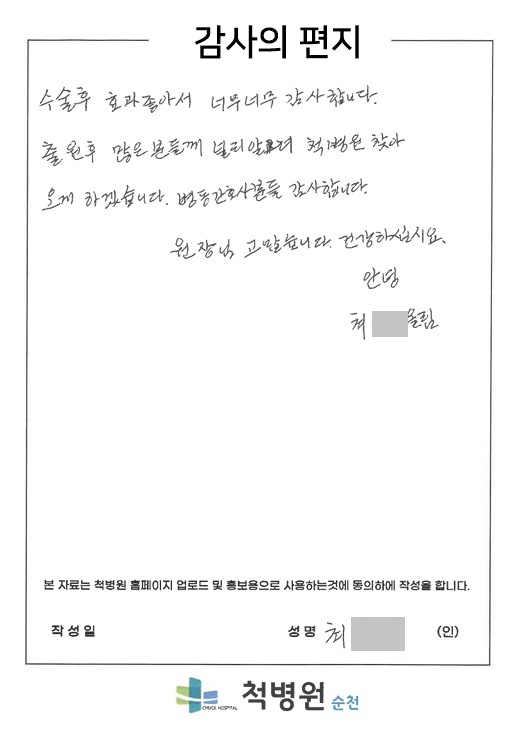 감사의 편지
수술후 효과좋아서 너무너무 감사합니다.
출원후 많은분들께 널리알려 척병원 찾아
오게 하겠습니다. 병동간호사분들 감사합니다.
원장님 고맙습니다. 건강하십시요.
안녕
최 올림
본 자료는 척병원 홈페이지 업로드 및 홍보용으로 사용하는것에 동의하에 작성을 합니다.
작 성 일 성 명 최 (인)
CHUCK HOSPITAL 척병원 순천